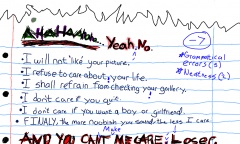 AHAHAHaha. Yeah, No. -7
#Grammatical errors (5)
#Neatness (2)
• I will not like your picture.
• I refuse to care about your life.
• I shall refrain from checking your gallery.
• I don't care if you quit.
• I don't care if you want a boy or girlfriend.
• FINALY, the more noobish you sound, the less I care.
Make
AND YOU CAN'T ME CARE, Loser.